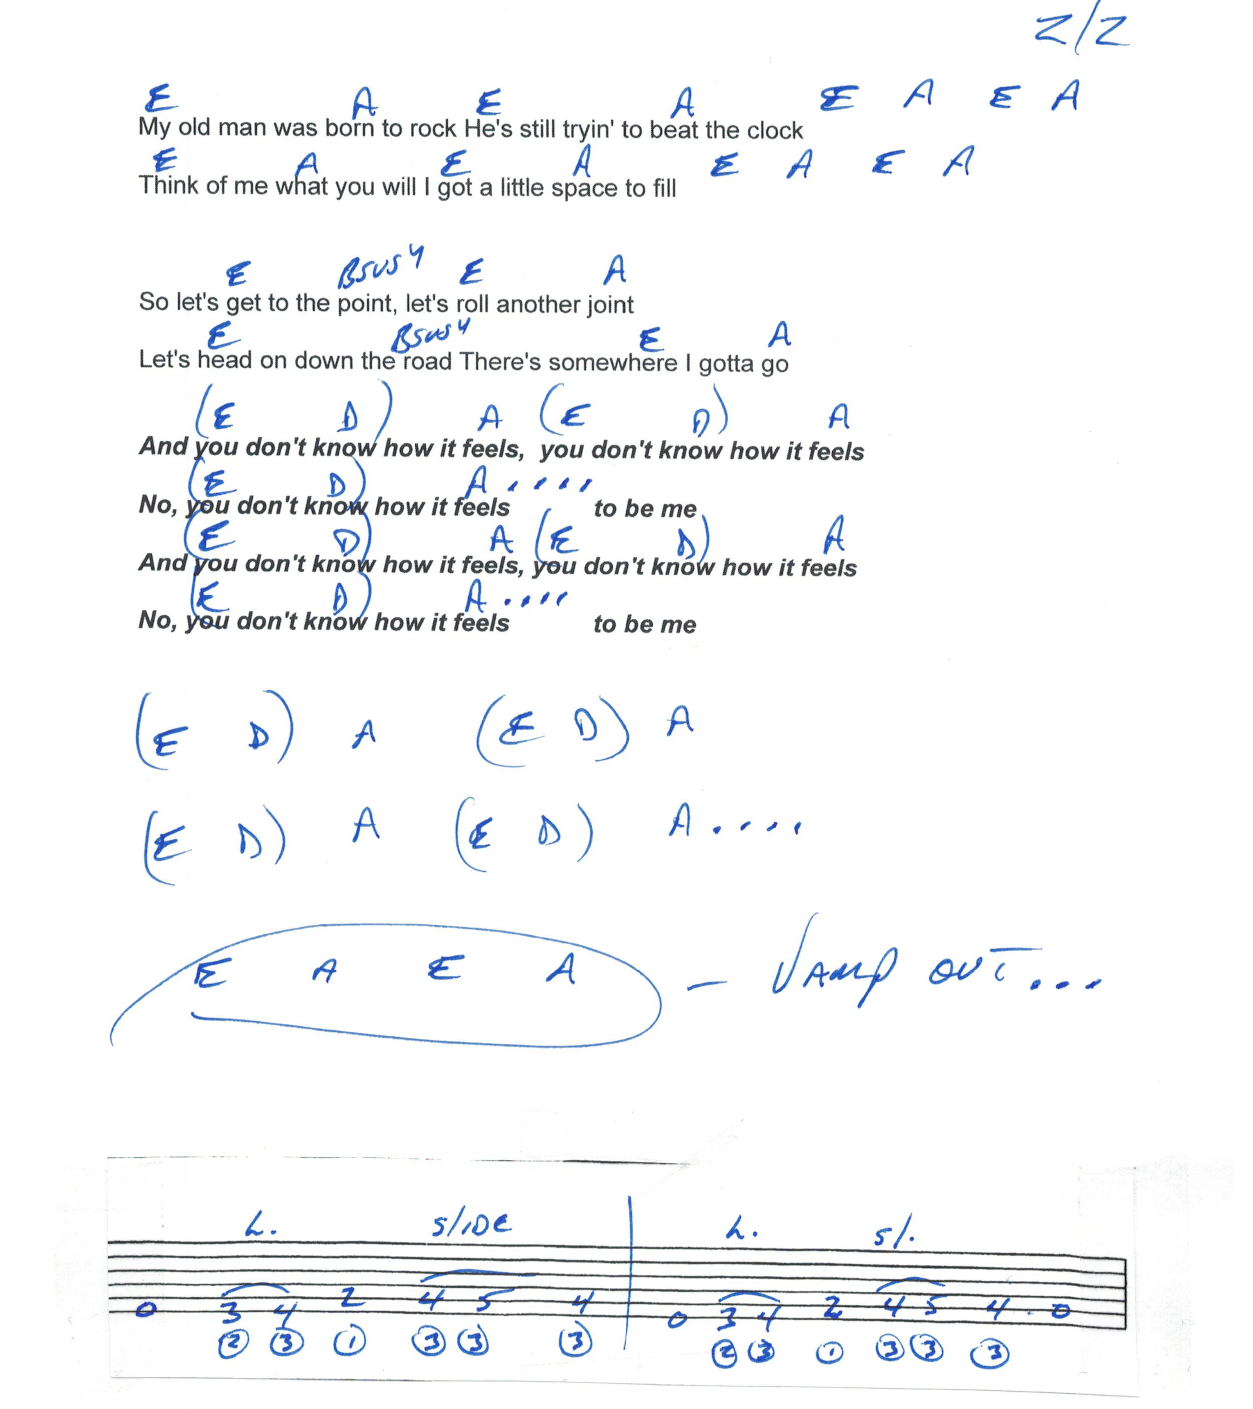 2/2
E A E A E A E A
My old man was born to rock He's still tryin' to beat the clock
E A E A E A E A
Think of me what you will I got a little space to fill
E Bsus4 E A
So let's get to the point, let's roll another joint
E Bsus4 E A
Let's head on down the road There's somewhere I gotta go
(E D) A (E D) A
And you don't know how it feels, you don't know how it feels
(E D) A . . . .
No, you don't know how it feels to be me
(E D) A (E D) A
And you don't know how it feels, you don't know how it feels
(E D) A . . . .
No, you don't know how it feels to be me
(E D) A (E D) A
(E D) A (E D) A . . . .
E A E A - VAMP OUT...
h. SLIDE h. Sl.
0 3 4 2 4 5 4 0 3 4 2 4 5 4 . 0
2 3 1 3 3 3 2 3 1 3 3 3